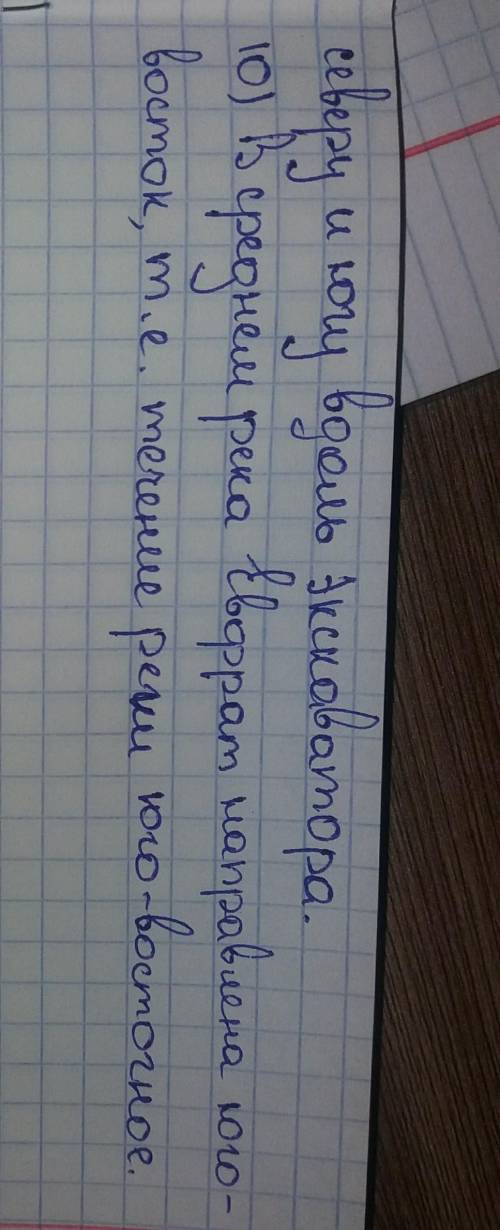 северу и югу вдоль Экскаватора.
10) В среднем река Евфрат направлена юго-
восток, т.е. течение реки юго-восточное.